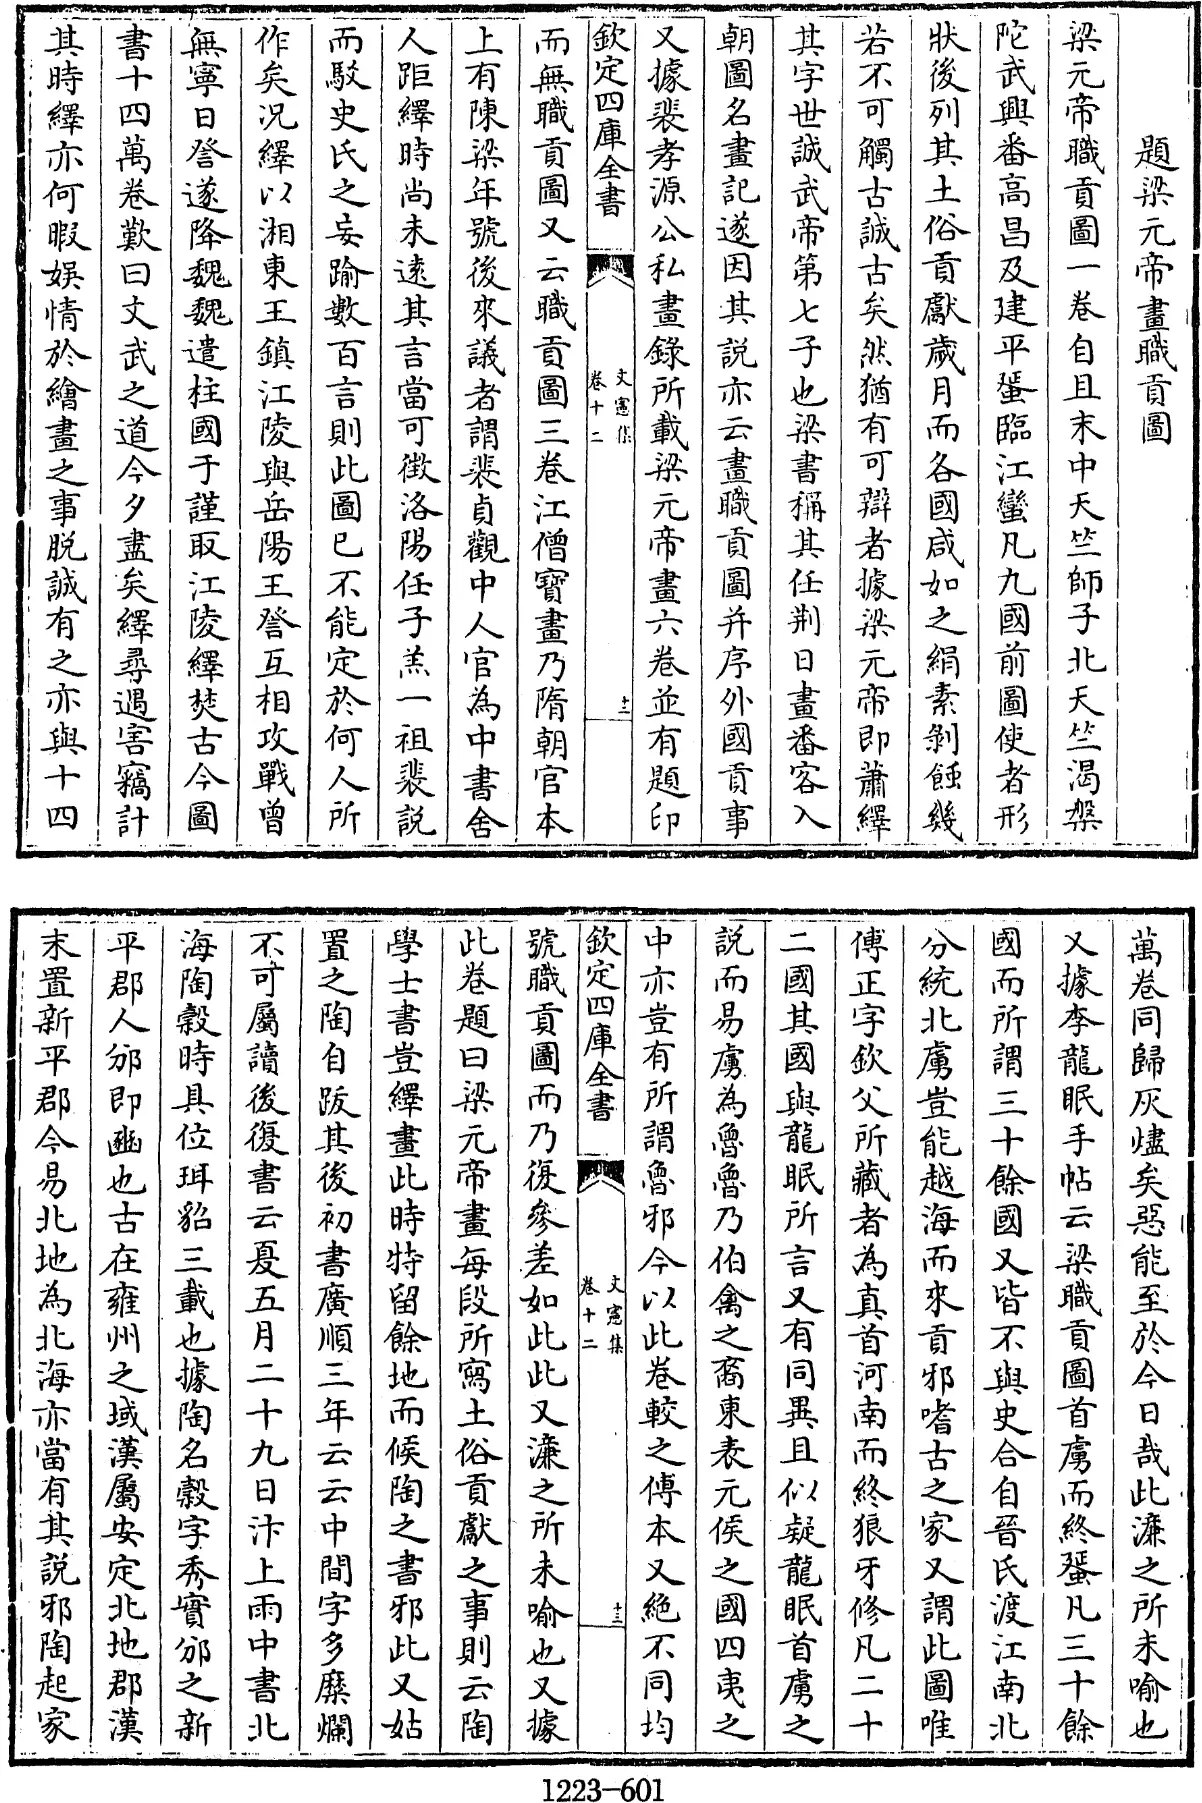 題梁元帝畫職貢圖
梁元帝職貢圖一卷自且末中天竺師子北天竺渴槃
陀武興番高昌及建平蜑臨江蠻凡九國前圖使者形
狀後列其土俗貢獻歲月而各國咸如之絹素剝蝕幾
若不可觸古誠古矣然猶有可辯者據梁元帝即蕭繹
其字世誠武帝第七子也梁書稱其任荆日畫番客入
朝圖名畫記遂因其說亦云畫職貢圖并序外國貢事
又據裴孝源公私畫錄所載梁元帝畫六卷並有題印
欽定四庫全書
文憲集
卷十二
十二
而無職貢圖又云職貢圖三卷江僧寶畫乃隋朝官本
上有陳梁年號後來議者謂裴貞觀中人官為中書舍
人距繹時尚未遠其言當可徴洛陽任子羔一祖裴說
而駁史氏之妄踰數百言則此圖已不能定於何人所
作矣况繹以湘東王鎮江陵與岳陽王詧互相攻戰曾
無寧日詧遂降魏魏遣柱國于謹取江陵繹焚古今圖
書十四萬卷歎曰文武之道今夕盡矣繹尋遇害竊計
其時繹亦何暇娱情於繪畫之事脱誠有之亦與十四
萬卷同歸灰燼矣惡能至於今日哉此濂之所未喻也
又據李龍眠手帖云梁職貢圖首虜而終蜑凡三十餘
國而所謂三十餘國又皆不與史合自晉氏渡江南北
分統北虜豈能越海而來貢邪嗜古之家又謂此圖唯
傅正字欽父所藏者為真首河南而終狼牙修凡二十
二國其國與龍眠所言又有同異且似疑龍眠首虜之
說而易虜為魯魯乃伯禽之裔東表元侯之國四夷之
中亦豈有所謂魯邪今以此卷較之傅本又絶不同均
欽定四庫全書
文憲集
卷十二
十三
號職貢圖而乃復參差如此此又濂之所未喻也又據
此卷題曰梁元帝畫每段所寫土俗貢獻之事則云陶
學士書豈繹畫此時特留餘地而候陶之書邪此又姑
置之陶自跋其後初書廣順三年云云中間字多糜爛
不可屬讀後復書云夏五月二十九日汴上雨中書北
海陶穀時具位珥貂三載也據陶名穀字秀實邠之新
平郡人邠即豳也古在雍州之域漢屬安定北地郡漢
末置新平郡今易北地為北海亦當有其説邪陶起家
1223-601